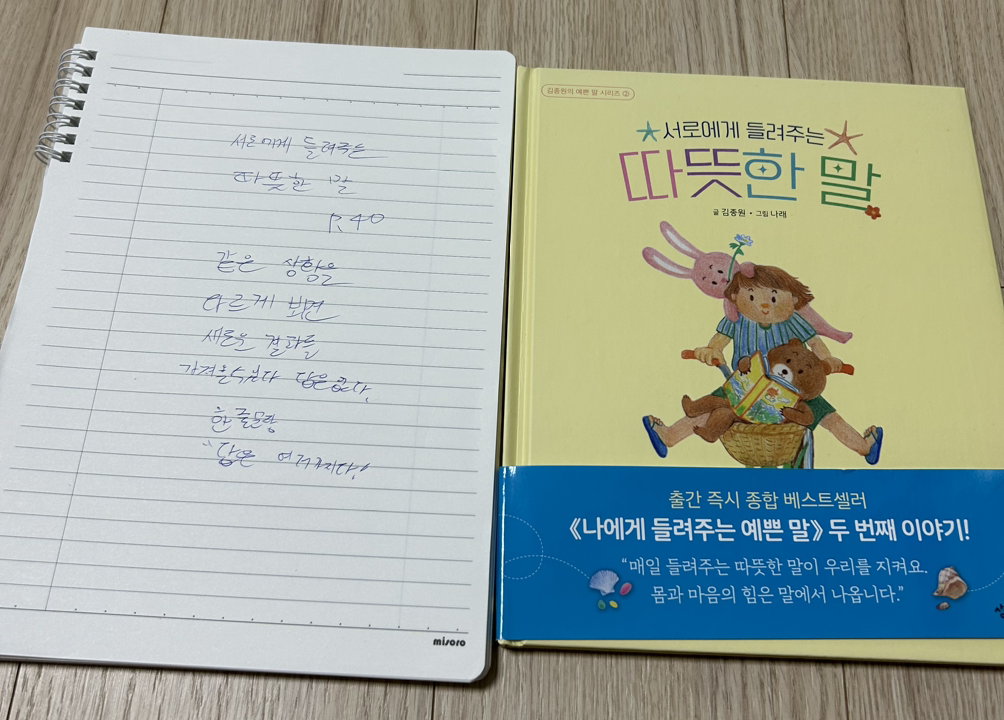 서로에게 들려주는
따뜻한 말
P.40
같은 상황을
다르게 보면
새로운 결과를
가져올 수 있다
한 줄 문장
"답은 여러가지다!
misoro
김종원의 예쁜 말 시리즈 ②
서로에게 들려주는
따뜻한 말
글 김종원 • 그림 나래
출간 즉시 종합 베스트셀러
《나에게 들려주는 예쁜 말》 두 번째 이야기!
“매일 들려주는 따뜻한 말이 우리를 지켜요.
몸과 마음의 힘은 말에서 나옵니다.”